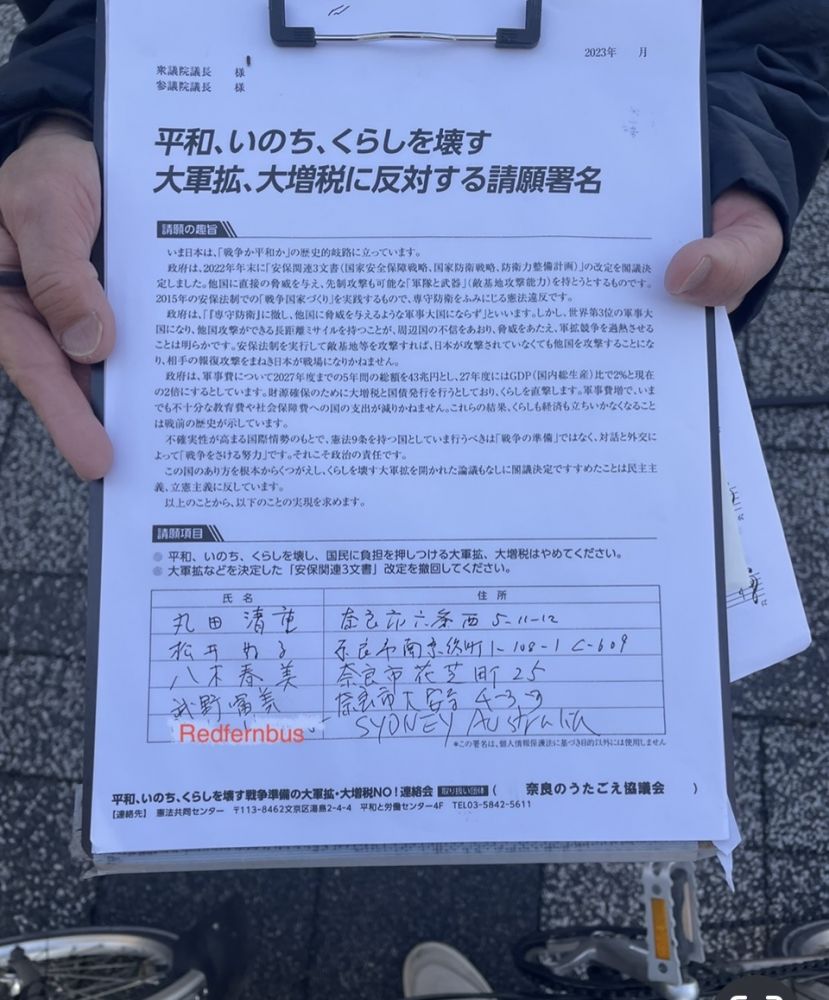 2023年　月
衆議院議長　様
参議院議長　様
平和、いのち、くらしを壊す
大軍拡、大増税に反対する請願署名
請願の趣旨
いま日本は、「戦争か平和か」の歴史的岐路に立っています。
政府は、2022年年末に「安保関連3文書(国家安全保障戦略、国家防衛戦略、防衛力整備計画)」の改定を閣議決
定しました。他国に直接の脅威を与え、先制攻撃も可能な「軍隊と武器」(敵基地攻撃能力)を持とうとするものです。
2015年の安保法制での「戦争国家づくり」を実践するもので、専守防衛をふみにじる憲法違反です。
政府は、「『専守防衛』に徹し、他国に脅威を与えるような軍事大国にならず」といいます。しかし、世界第3位の軍事大
国になり、他国攻撃ができる長距離ミサイルを持つことが、周辺国の不信をあおり、脅威をあたえ、軍拡競争を過熱させる
ことは明らかです。安保法制を実行して敵基地等を攻撃すれば、日本が攻撃されていなくても他国を攻撃することにな
り、相手の報復攻撃をまねき日本が戦場になりかねません。
政府は、軍事費について2027年度までの5年間の総額を43兆円とし、27年度にはGDP(国内総生産)比で2%と現在
の2倍にするとしています。財源確保のために大増税と国債発行を行うとしており、くらしを直撃します。軍事費増で、いま
でも不十分な教育費や社会保障費への国の支出が減りかねません。これらの結果、くらしも経済も立ちいかなくなること
は戦前の歴史が示しています。
不確実性が高まる国際情勢のもとで、憲法9条を持つ国としていま行うべきは「戦争の準備」ではなく、対話と外交に
よって「戦争をさける努力」です。それこそ政治の責任です。
この国のあり方を根本からくつがえし、くらしを壊す大軍拡を開かれた論議もなしに閣議決定ですすめたことは民主主
義、立憲主義に反しています。
以上のことから、以下のことの実現を求めます。
請願項目
平和、いのち、くらしを壊し、国民に負担を押しつける大軍拡、大増税はやめてください。
大軍拡などを決定した「安保関連3文書」改定を撤回してください。
氏名　住所
丸田 清　奈良市六条西 5-11-12
松井　奈良市南京終町1-108-1 C-609
八木春美　奈良市花芝町25
武野富美　奈良市大安寺 4-3-9
Redfernbus　SYDNEY Australia
*この署名は、個人情報保護法に基づき目的以外には使用しません
平和、いのち、くらしを壊す戦争準備の大軍拡・大増税NO!連絡会　取り扱い団体(　奈良のうたごえ協議会　)
【連絡先】　憲法共同センター　〒113-8462文京区湯島2-4-4　平和と労働センター4F　TEL03-5842-5611